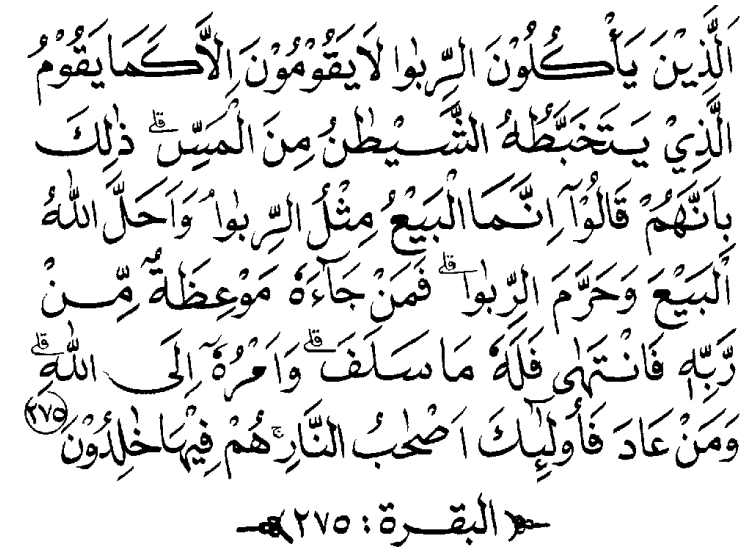 اَلَّذِيْنَ يَأْكُلُوْنَ الرِّبٰوا لَا يَقُوْمُوْنَ اِلَّا كَمَا يَقُوْمُ
الَّذِيْ يَتَخَبَّطُهُ الشَّيْطٰنُ مِنَ الْمَسِّۗ ذٰلِكَ
بِاَنَّهُمْ قَالُوْٓا اِنَّمَا الْبَيْعُ مِثْلُ الرِّبٰواۘ وَاَحَلَّ اللّٰهُ
الْبَيْعَ وَحَرَّمَ الرِّبٰواۗ فَمَنْ جَاۤءَهٗ مَوْعِظَةٌ مِّنْ
رَّبِّهٖ فَانْتَهٰى فَلَهٗ مَا سَلَفَۗ وَاَمْرُهٗٓ اِلَى اللّٰهِۗ
وَمَنْ عَادَ فَاُولٰۤىِٕكَ اَصْحٰبُ النَّارِۚ هُمْ فِيْهَا خٰلِدُوْنَ ٢٧٥
﴿البقرة : ٢٧٥﴾